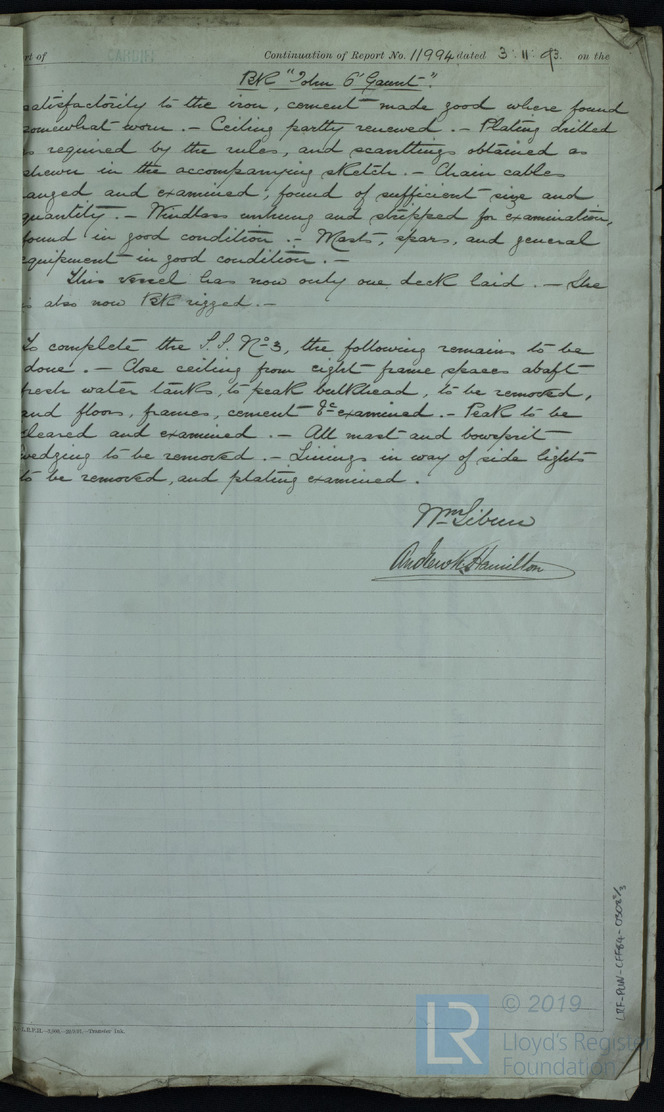 rt of CARDIFF Continuation of Report No. 11994 dated 3.11.93. on the
BK "John O' Gaunt".
satisfactorily to the iron, cement made good where found
somewhat worn. - Ceiling partly renewed. - Plating drilled
as required by the rules, and scantlings obtained as
shewn in the accompanying sketch. - Chain cables
anged and examined, found of sufficient size and
quantity. - Windlass unhung and stripped for examination,
found in good condition. - Masts, spars, and general
equipment in good condition. -
This vessel has now only one deck laid. - She
is also now BK rigged. -
To complete the S.S. No 3, the following remains to be
done. - Close ceiling from eight frame spaces abaft
fresh water tanks, to peak bulkhead, to be removed,
and floors, frames, cement &c examined. - Peak to be
cleared and examined. - All mast and bowsprit
wedging to be removed. - Linings in way of side lights
to be removed, and plating examined.
Wm
Andrew K. Hamilton
LRF-PUN-CFF84-0302 2/3
Transfer Ink.
LR © 2019
Lloyd's Register
Foundation